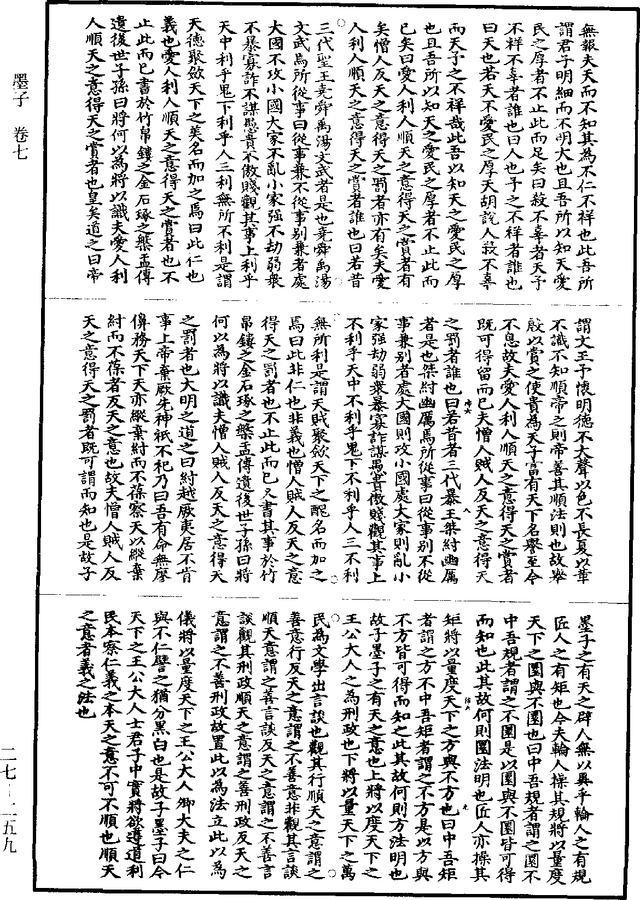 無報夫天而不知其為不仁不祥也此吾所
謂君子明細而不明大也且吾所以知天愛
民之厚者不止此而足矣曰殺不辜者天予
不祥不辜者誰也曰人也予之不祥者誰也
曰天也若天不愛民之厚夫胡說人殺不辜
而天予之不祥哉此吾以知天之愛民之厚
也且吾所以知天之愛民之厚者不止此而
已矣曰愛人利人順天之意得天之賞者有
矣憎人反天之意得天之罰者亦有矣夫愛
人利人順天之意得天之賞者誰也曰若昔
三代聖王堯舜禹湯文武者是也堯舜禹湯
文武焉所從事曰從事兼不從事別兼者處
大國不攻小國大家不亂小家強不劫弱眾
不暴寡詐不謀愚貴不傲賤觀其事上利乎
天中利乎鬼下利乎人三利無所不利是謂
天德聚斂天下之美名而加之焉曰此仁也
義也愛人利人順天之意得天之賞者也不
止此而已書於竹帛鏤之金石琢之槃盂傳
遺後世子孫曰將何以為將以識夫愛人利
人順天之意得天之賞者也皇矣道之曰帝
墨子　卷七
謂文王予懷明德不大聲以色不長夏以革
不識不知順帝之則帝善其順法則也故舉
殷以賞之使貴為天子富有天下名譽至今
不息故夫愛人利人順天之意得天之賞者
既可得留而已夫憎人賊人反天之意得天
之罰者誰也曰若昔者三代暴王桀紂幽厲
者是也桀紂幽厲焉所從事曰從事別不從
事兼別者處大國則攻小國處大家則亂小
家強劫弱眾暴寡詐謀愚貴傲賤觀其事上
不利乎天中不利乎鬼下不利乎人三不利
無所利是謂天賊聚斂天下之醜名而加之
焉曰此非仁也非義也憎人賊人反天之意
得天之罰者也不止此而已又書其事於竹
帛鏤之金石琢之槃盂傳遺後世子孫曰將
何以為將以識夫憎人賊人反天之意得天
之罰者也大明之道之曰紂越厥夷居不肯
事上帝棄厥先神祇不祀乃曰吾有命無廖
務天下天亦縱棄紂而不葆察天以縱棄
紂而不葆者反天之意也故夫憎人賊人反
天之意得天之罰者既可謂而知也是故子
墨子之有天之辟人無以異乎輪人之有規
匠人之有矩也今夫輪人操其規將以量度
天下之圜與不圜也曰中吾規者謂之圜不
中吾規者謂之不圜是以圜與不圜皆可得
而知也此其故何則圜法明也匠人亦操其
矩將以量度天下之方與不方也曰中吾矩
者謂之方不中吾矩者謂之不方是以方與
不方皆可得而知之此其故何則方法明也
故子墨子之有天之意也上將以度天下之
王公大人之為刑政也下將以量天下之萬
民為文學出言談也觀其行順天之意謂之
善意行反天之意謂之不善意非觀其言談
順天意謂之善言談反天之意謂之不善言
談觀其刑政順天之意謂之善刑政反天之
意謂之不善刑政故置此以為法立此以為
儀將以量度天下之王公大人卿大夫之仁
與不仁譬之猶分黑白也是故子墨子曰今
天下之王公大人士君子中實將欲遵道利
民本察仁義之本天之意不可不順也順天
之意者義之法也
二七－二五九